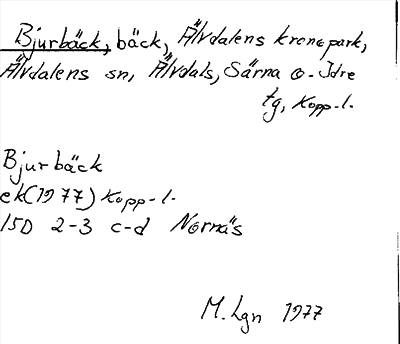 Bjurbäck, bäck, Älvdalens kronopark,
Älvdalens sn, Älvdals, Särna o. Idre
tg, Kopp-l.
Bjurbäck
ek(1977) Kopp-l.
15D 2-3 c-d Nornäs
M. Lgn 1977